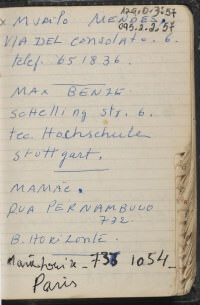 129.0.3.57
x MURILO MENDES. 095.2.2.57
VIA DEL CONSOLATO. 6.
telef. 651836.
MAX BENZE.
SCHELLING STR. 6.
tec. Hochschule
STUTTGART.
MAMÃE.
RUA PERNAMBUCO
722.
B. HORIZONTE.
738 1054_
Paris